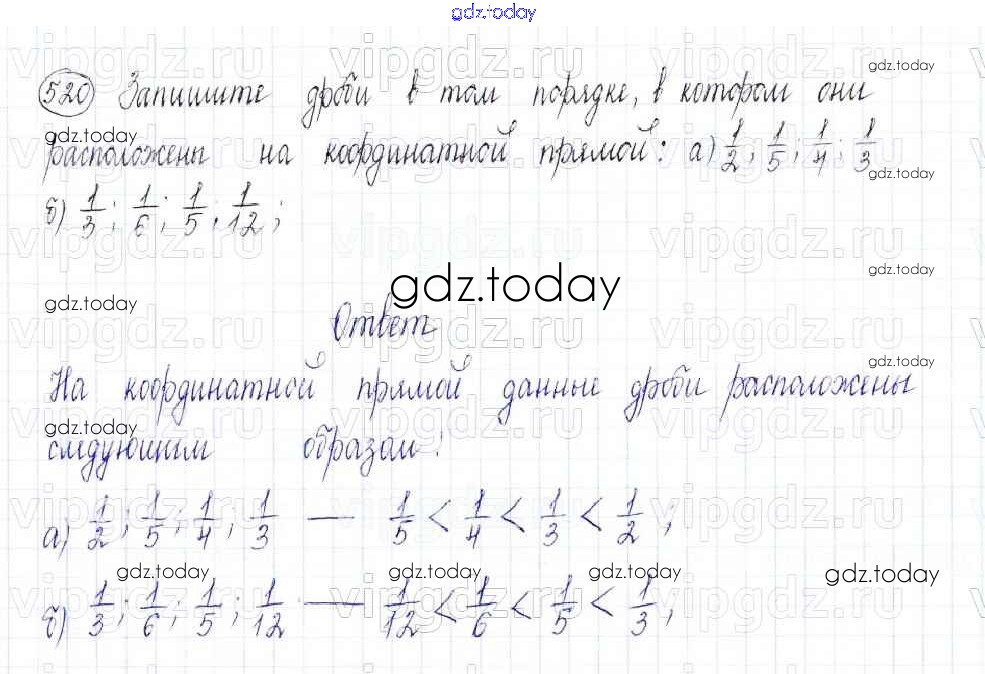 gdz.today
520 Запишите дроби в том порядке, в котором они
расположены на координатной прямой: а) 1/2; 1/5; 1/4; 1/3
б) 1/3; 1/6; 1/5; 1/12;
gdz.today
Ответ
На координатной прямой данные дроби расположены
следующим образом:
а) 1/2; 1/5; 1/4; 1/3 — 1/5 < 1/4 < 1/3 < 1/2;
б) 1/3; 1/6; 1/5; 1/12 — 1/12 < 1/6 < 1/5 < 1/3;